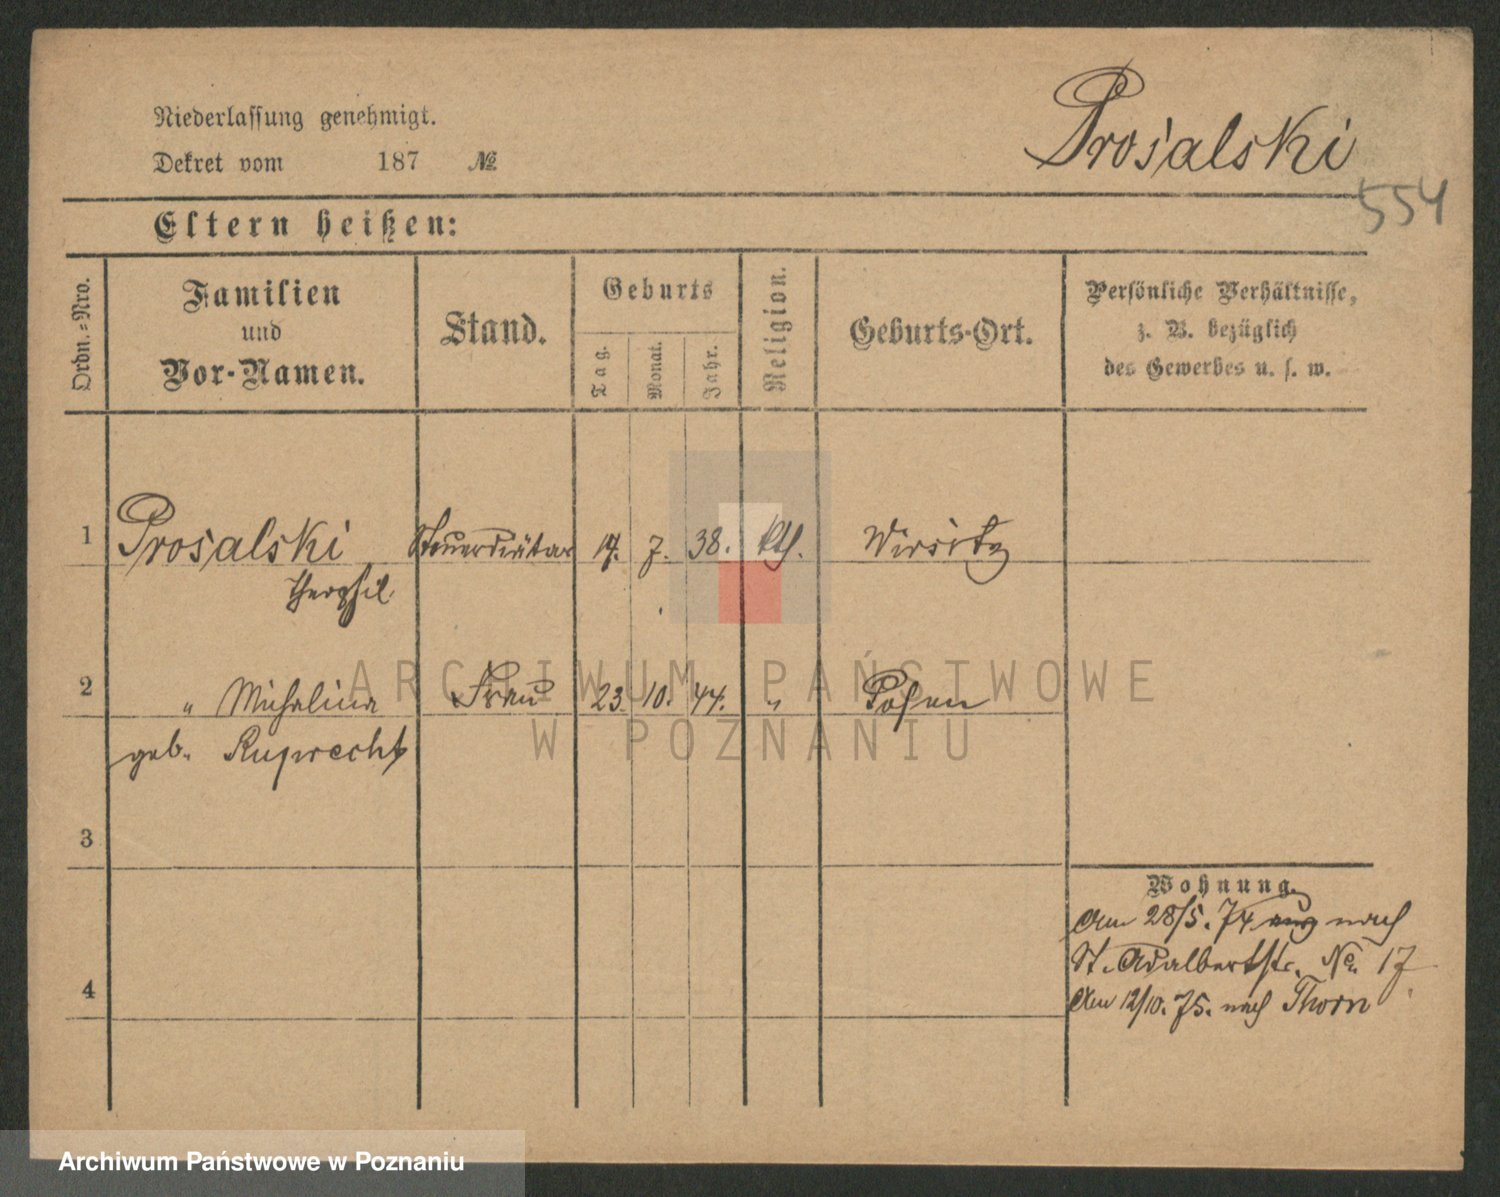 Niederlassung genehmigt.
Dekret vom 187 №
Prosalski
554
Eltern heißen:
Ordn.-Nro.
Familien
und
Vor-Namen.
Stand.
Geburts
Tag.
Monat.
Jahr.
Religion.
Geburts-Ort.
Persönliche Verhältnisse,
z. B. bezüglich
des Gewerbes u. s. w.
1 Prosalski Steuerdiätar 14. 7. 38. kth. Wirsitz
Theophil
2 " Michalina Frau 23. 10. 44. " Posen
geb. Ruprecht
3
Wohnung.
Am 28/5. 74 aus nach
St. Adalbertstr. No. 17
4
Am 12/10. 75. nach Thorn
ARCHIWUM PAŃSTWOWE
W POZNANIU
Archiwum Państwowe w Poznaniu